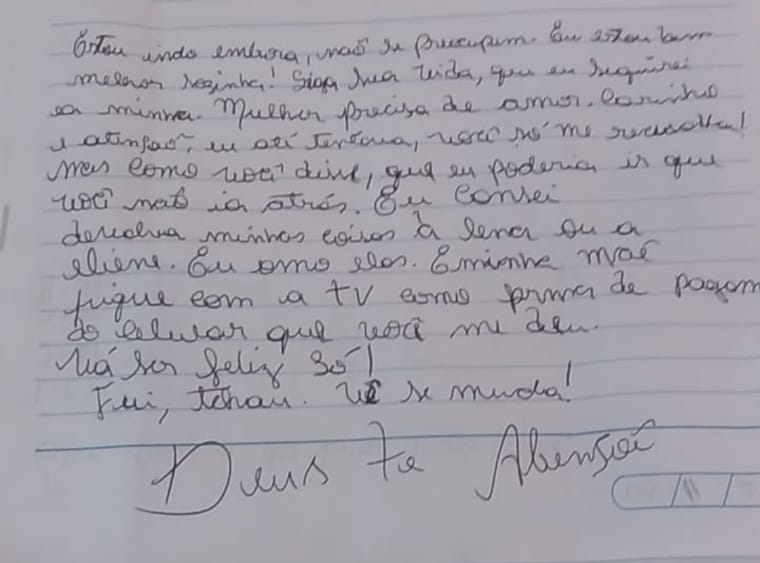 Estou indo embora, não se preocupem. Eu estou bem
melhor sozinha! Siga sua vida, que eu seguirei
a minha. Mulher precisa de amor, carinho
e atenção, eu até tentava, você só me
Mas como você disse, que eu poderia ir que
você não ia atrás. Eu cansei
devolva minhas coisas à lena ou a
eliene. Eu amo elas. E minha mãe
fique com a TV como prova de pagam
do celular que você me deu.
Vá ser feliz só!
Fui, tchau. Vê se muda!
Deus te Abençoê